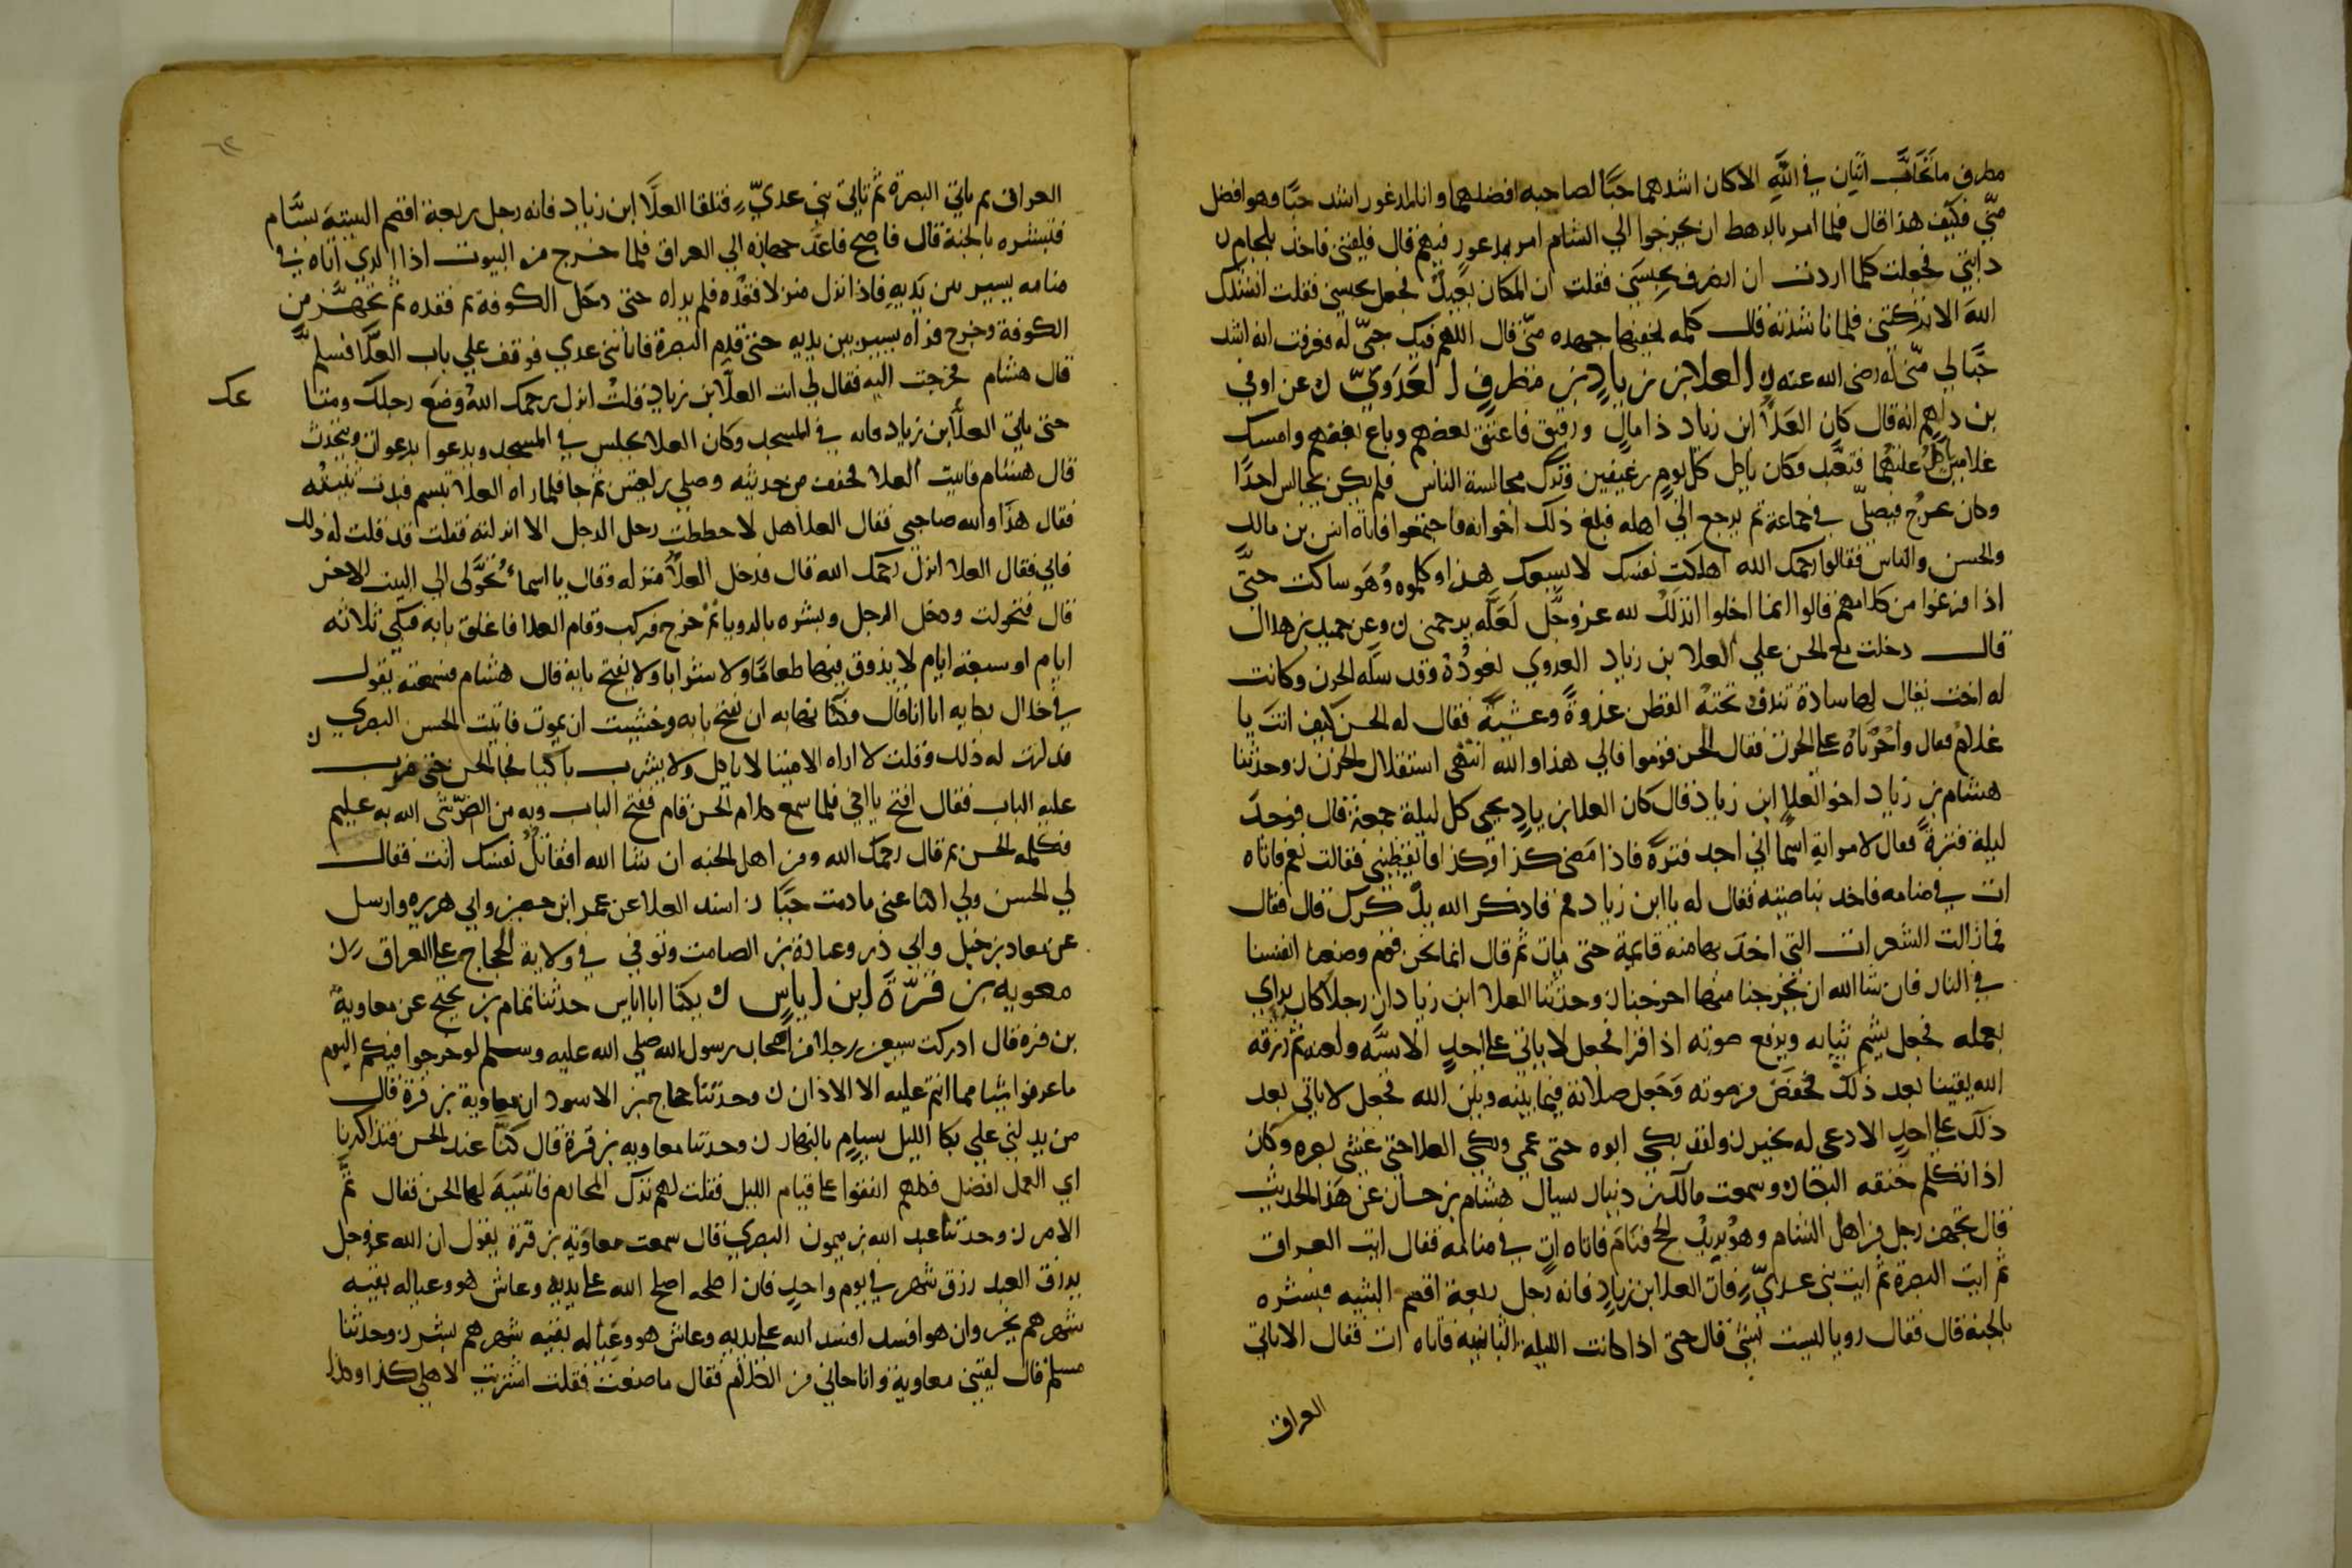 مطرف ما تحاب اثنان في الله الا كان اشدهما حبا لصاحبه افضلهما وانا لمذعور اشد حبا وهو افضل
مني فكيف هذا قال فلما امر بالرهط ان يخرجوا الي الشام امر بمذعور فيهم قال فلقيني فاخذ بلجام
دابتي فجعلت كلما اردت ان انصرف حبسني فقلت ان المكان بعيد فجعل يحبسني فقلت انشدك
الله الا تركتني فلما ناشدته قال كلمه يخفيها جهده مني قال اللهم فيك حبي له فعرفت انه اشد
حبا لي مني له رضي الله عنه ن العلا بن زياد بن مطرف العدوي ن عن اوفي
بن دلهم انه قال كان العلا ابن زياد ذا مال ورقيق فاعتق بعضهم وباع بعضهم وامسك
غلامين ياكل غلتهما فتعبد وكان ياكل كل يوم رغيفين وترك مجالسة الناس فلم يكن يجالس احدا
وكان يخرج فيصلي في جماعة ثم يرجع الي اهله فبلغ ذلك اخوانه فاجتمعوا فاتاه انس بن مالك
والحسن والناس فقالوا رحمك الله اهلكت نفسك لا يسعك هذا وكلموه وهو ساكت حتي
اذا فرغوا من كلامهم قالوا انما اخلوا اتذلل لله عز وجل لعله يرحمني ن وعن حميد بن هلال
قال دخلت مع الحسن علي العلا بن زياد العدوي نعوده وقد سله الحزن وكانت
له اخت يقال لها سادة تندف تحته القطن غدوة وعشية فقال له الحسن كيف انت يا
علا فقال واحزناه علي الحزن فقال الحسن قوموا فالي هذا والله انتهي استقلال الحزن ن وحدثنا
هشام بن زياد اخو العلا ابن زياد قال كان العلا بن زياد يحيي كل ليلة جمعة قال فوجد
ليلة فترة فقال لامراته اسما اني اجد فترة فاذا مضي كذا وكذا فايقظيني فقالت نعم فاتاه
ات في منامه فاخذ بناصيته فقال له يا ابن زياد قم فاذكر الله يذكرك قال فقام
فما زالت الشعرات التي اخذ بها منه قايمة حتي مات ثم قال انما نحن قوم وضعنا انفسنا
في النار فان شا الله ان يخرجنا منها اخرجنا ن وحدثنا العلا ابن زياد ان رجلا كان يراي
بعمله فجعل يشمر ثيابه ويرفع صوته اذا قرا فجعل لا ياتي علي احد الا سبه ولعنه ثم رزقه
الله يقينا بعد ذلك فخفض من صوته وجعل صلاته فيما بينه وبين الله فجعل لا ياتي بعد
ذلك علي احد الا دعي له بخير ن ولقد بكي ابوه حتي عمي وبكي العلا حتي غشي بصره وكان
اذا تكلم خنقه البكا ن وسمعت مالك بن دينار يسال هشام بن حسان عن هذا الحديث
قال تجهز رجل من اهل الشام وهو يريد الحج فنام فاتاه ات في منامه فقال ايت العراق
ثم ايت البصرة ثم ايت بني عدي فات العلا بن زياد فانه رجل ربعة اقصم الثنيه فبشره
بالجنة قال فقال رويا ليست بشئ قال حتي اذا كانت الليلة الثانيه فاتاه ات فقال الا تاتي
العراق
العراق ثم تاتي البصرة ثم تاتي بني عدي فتلقا العلا ابن زياد فانه رجل ربعة اقصم الثنية بسام
فتبشره بالجنة قال فاصبح فاعد جهازه الي العراق فلما خرج من البيوت اذا الذي اتاه في
منامه يسير بين يديه فاذا نزل منزلا فقده فلم يراه حتي دخل الكوفة ثم فقده ثم تجهز من
الكوفة وخرج فراه يسير بين يديه حتي قدم البصرة فاتا بني عدي فوقف علي باب العلا فسلم
قال هشام فخرجت اليه فقال لي انت العلا بن زياد قلت انزل يرحمك الله وضع رحلك ومتاعك
حتي ياتي العلا بن زياد فانه في المسجد وكان العلا يجلس في المسجد ويدعوا بدعوات ويتحدث
قال هشام فاتيت العلا فخفف من حديثه وصلي ركعتين ثم جا فلما راه العلا تبسم فبدت ثنيته
فقال هذا والله صاحبي فقال العلا هل لا حططت رحل الرجل الا انزلته فقلت قد قلت له ذلك
فابي فقال العلا انزل رحمك الله قال فدخل العلا منزله وقال يا اسماء تحولي الي البيت الاخر
قال فتحولت ودخل الرجل وبشره بالرويا ثم خرج فركب وقام العلا فاغلق بابه فبكي ثلاثه
ايام او سبعة ايام لا يذوق فيها طعاما ولا شرابا ولا يفتح بابه قال هشام فسمعته يقول
في خلال بكايه انا انا قال وكنا نهابه ان نفتح بابه وخشيت ان يموت فاتيت الحسن البصري
فذكرت له ذلك وقلت لا اراه الا ميتا لا ياكل ولا يشرب باكيا فجا الحسن حتي ضرب
عليه الباب فقال افتح يا اخي فلما سمع كلام الحسن قام ففتح الباب وبه من الضر شي الله به عليم
فكلمه الحسن ثم قال رحمك الله ومن اهل الجنه ان شا الله افقاتل نفسك انت فقال
لي الحسن ولي اكتما عني ما دمت حيا ن اسند العلا عن عمر ابن حصين وابي هريره وارسل
عن معاد بن جبل وابي ذر وعبادة بن الصامت وتوفي في ولاية الحجاج علي العراق ن
معويه بن قرة ابن اياس ن يكنا ابا اياس حدثنا تمام بن نجيح عن معاوية
بن قرة قال ادركت سبعين رجلا من اصحاب رسول الله صلي الله عليه وسلم لو خرجوا فيكم اليوم
ما عرفوا شيا مما انتم عليه الا الاذان ن وحدثنا حجاج بن الاسود ان معاوية بن قرة قال
من يدلني علي بكا الليل بسام بالنهار ن وحدثنا معاويه بن قرة قال كنا عند الحسن فتذاكرنا
اي العمل افضل فكلهم اتفقوا علي قيام الليل فقلت لهم ترك المحارم فانتبه لها الحسن فقال تم
الامر ن وحدثنا عبد الله بن ميمون البصري قال سمعت معاوية بن قرة يقول ان الله عز وجل
يرزق العبد رزق شهر في يوم واحد فان اصلحه اصلح الله علي يديه وعاش هو وعياله بقيه
شهرهم بخير وان هو افسد افسد الله علي يديه وعاش هو وعياله بقيه شهرهم بشر ن وحدثنا
مسلم قال لقيني معاوية وانا جاي من الكلا فقال ما صنعت فقلت اشتريت لاهلي كذا وكذا